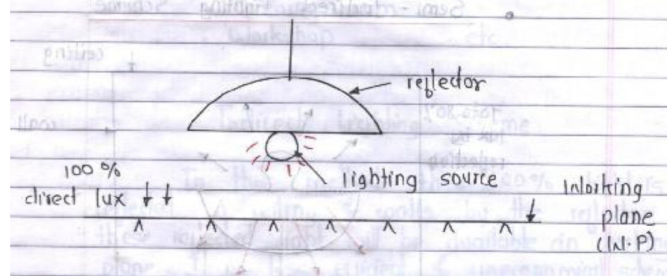 reflector
100 %
direct lux
lighting source
Working
plane
(W.P)